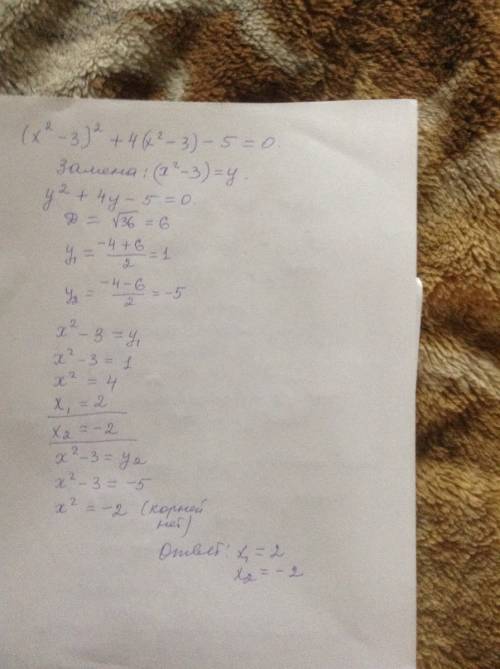 (x² - 3)² + 4(x² - 3) - 5 = 0.
Замена: (x² - 3) = y.
y² + 4y - 5 = 0
D = √36 = 6
y₁ = (-4 + 6)/2 = 1
y₂ = (-4 - 6)/2 = -5
x² - 3 = y₁
x² - 3 = 1
x² = 4
x₁ = 2
x₂ = -2
x² - 3 = y₂
x² - 3 = -5
x² = -2 (корней
нет)
Ответ: x₁ = 2
x₂ = -2